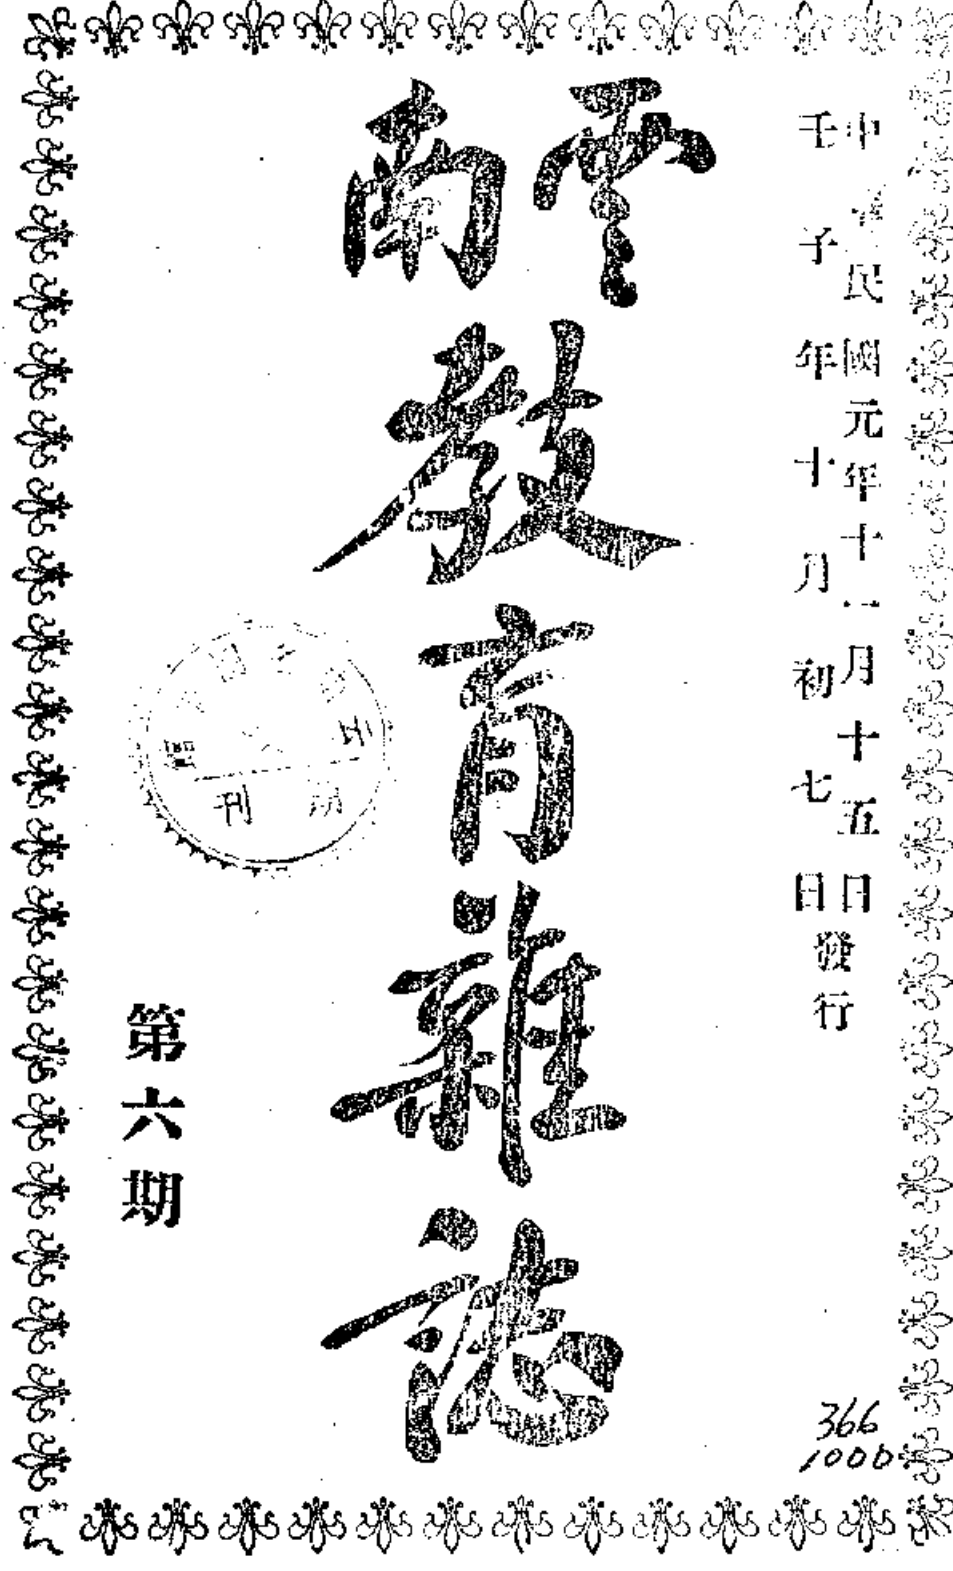 中華民國元年十一月十五日
壬子年十月初七日
發行
雲南
教育雜誌
第六期
期刊
366
1000